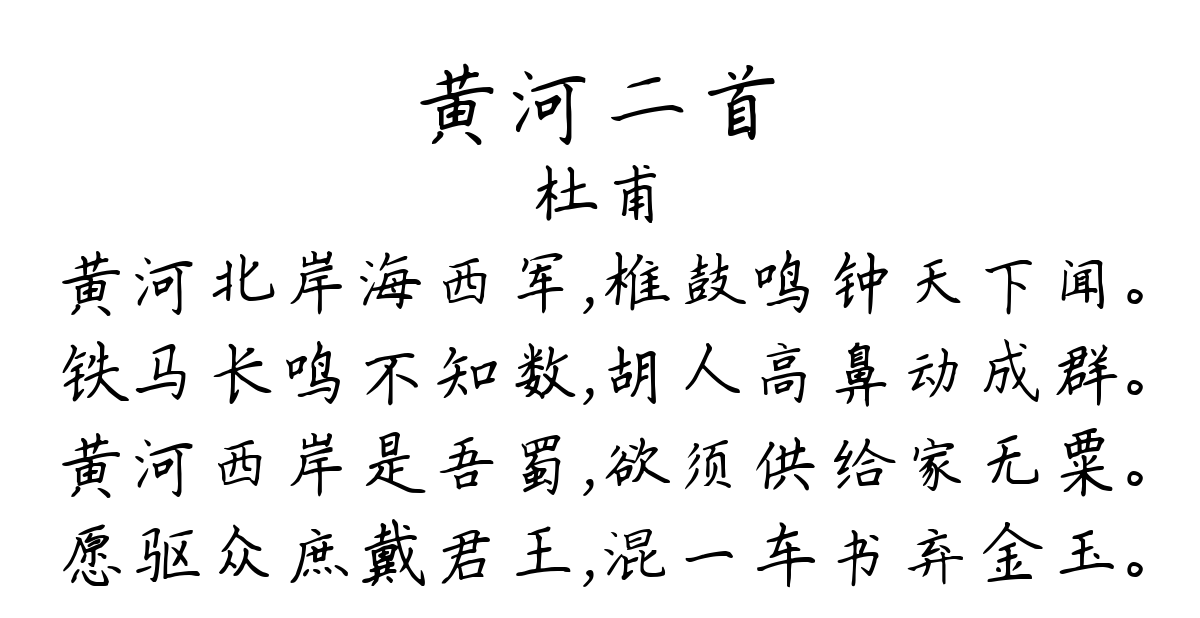 黄河二首
杜甫
黄河北岸海西军,椎鼓鸣钟天下闻。
铁马长鸣不知数,胡人高鼻动成群。
黄河西岸是吾蜀,欲须供给家无粟。
愿驱众庶戴君王,混一车书弃金玉。